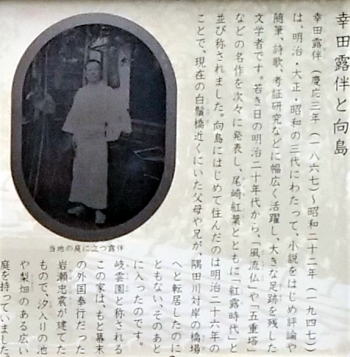 幸田露伴と向島
幸田露伴(慶応三年(一八六七)〜昭和二十二年(一九四七)
は、明治・大正・昭和の三代にわたって、小説をはじめ評論や
随筆、詩歌、考証研究などに幅広く活躍し、大きな足跡を残した
文学者です。若き日の明治二十年代から、「風流仏」や「五重塔」
などの名作を次々に発表し、尾崎紅葉とともに「紅露時代」と
並び称されました。向島にはじめて住んだのは明治二十六年の
ことで、現在の白鬚橋近くにいた父母や兄が、隅田川対岸の橋場
へと転居したのに
ともない、そのあと
に入ったのです。
岐雲園と称される
この家は、もと幕末
の外国奉行だった
岩瀬忠震が建てた
もので、汐入りの池
や梨畑のある広い
庭を持っていました
当地の庭に立つ露伴